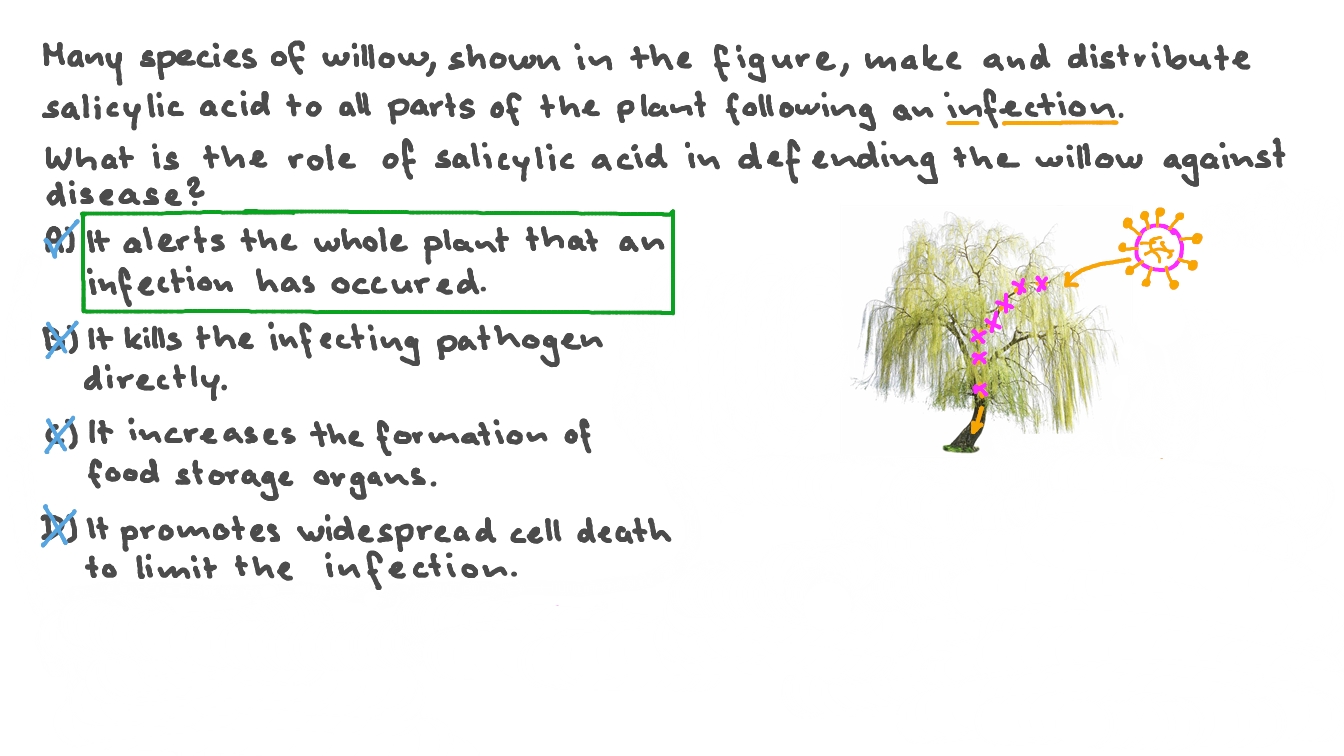 Many species of willow, shown in the figure, make and distribute
salicylic acid to all parts of the plant following an infection.
What is the role of salicylic acid in defending the willow against
disease?
A) It alerts the whole plant that an
infection has occured.
B) It kills the infecting pathogen
directly.
C) It increases the formation of
food storage organs.
D) It promotes widespread cell death
to limit the infection.